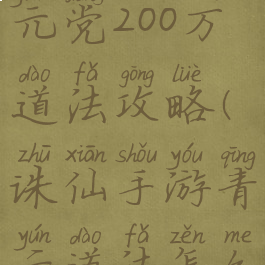 元党200万
dào fǎ gōng lüè
道法攻略(
zhū xiān shǒu yóu qīng
诛仙手游青
yún dào fǎ zěn me
云道法怎么